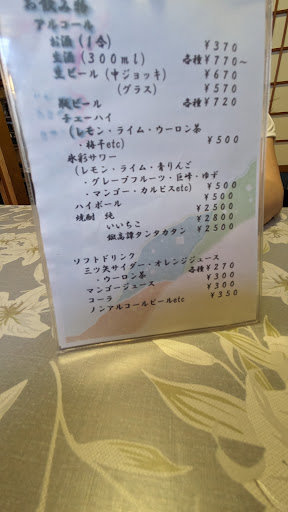 お飲み物
アルコール
お酒（1合） ￥370
生酒（300ml） 各種￥770～
生ビール（中ジョッキ） ￥670
（グラス） ￥570
瓶ビール 各種￥720
チューハイ
（レモン・ライム・ウーロン茶
・梅干etc） ￥500
氷彩サワー
（レモン・ライム・青りんご
・グレープフルーツ・巨峰・ゆず
・マンゴー・カルピスetc） ￥500
ハイボール ￥500
焼酎 純 ￥2500
いいちこ ￥2800
鍛高譚タンタカタン ￥2500
ソフトドリンク
三ツ矢サイダー・オレンジジュース
・ウーロン茶 各種￥270
マンゴージュース ￥300
コーラ ￥300
ノンアルコールビールetc ￥350